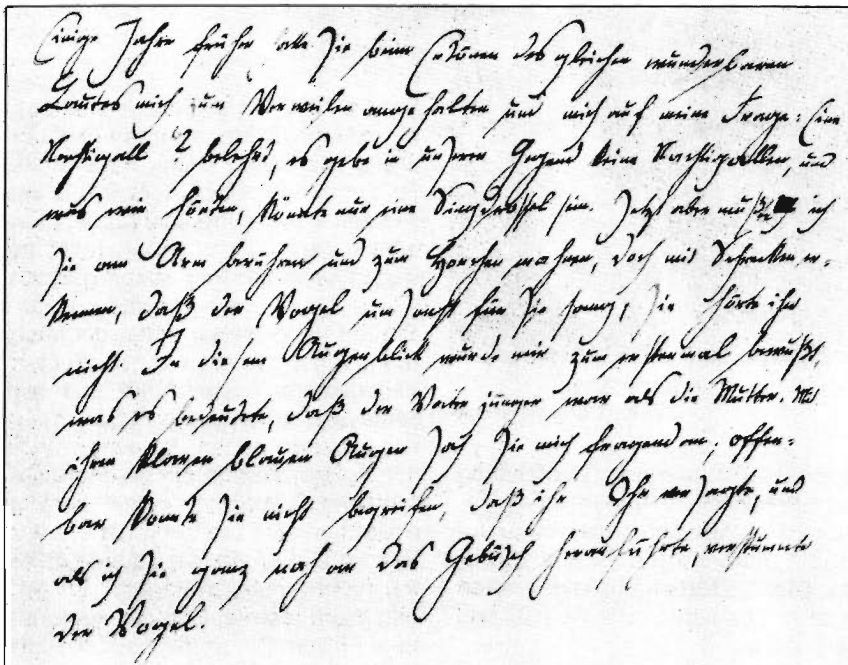 Einige Jahre früher hatte sie beim Ertönen des gleichen wunderbaren
Lautes mich zum Verweilen angehalten und mich auf meine Frage: Eine
Nachtigall? belehrt, es gebe in unserer Gegend keine Nachtigallen, und
was wir hörten, könnte nur eine Singdrossel sein. Jetzt aber mußte ich
sie am Arm berühren und zum Horchen mahnen, doch mit Schrecken er-
kennen, daß der Vogel umsonst für sie sang; sie hörte ihn
nicht. In diesem Augenblick wurde mir zum erstenmal bewußt,
was es bedeutete, daß der Vater jünger war als die Mutter. Mit
ihren klaren blauen Augen sah sie mich fragend an; offen-
bar konnte sie nicht begreifen, daß ihr Ohr versagte, und
als ich sie ganz nah an das Gebüsch heranführte, verstummte
der Vogel.